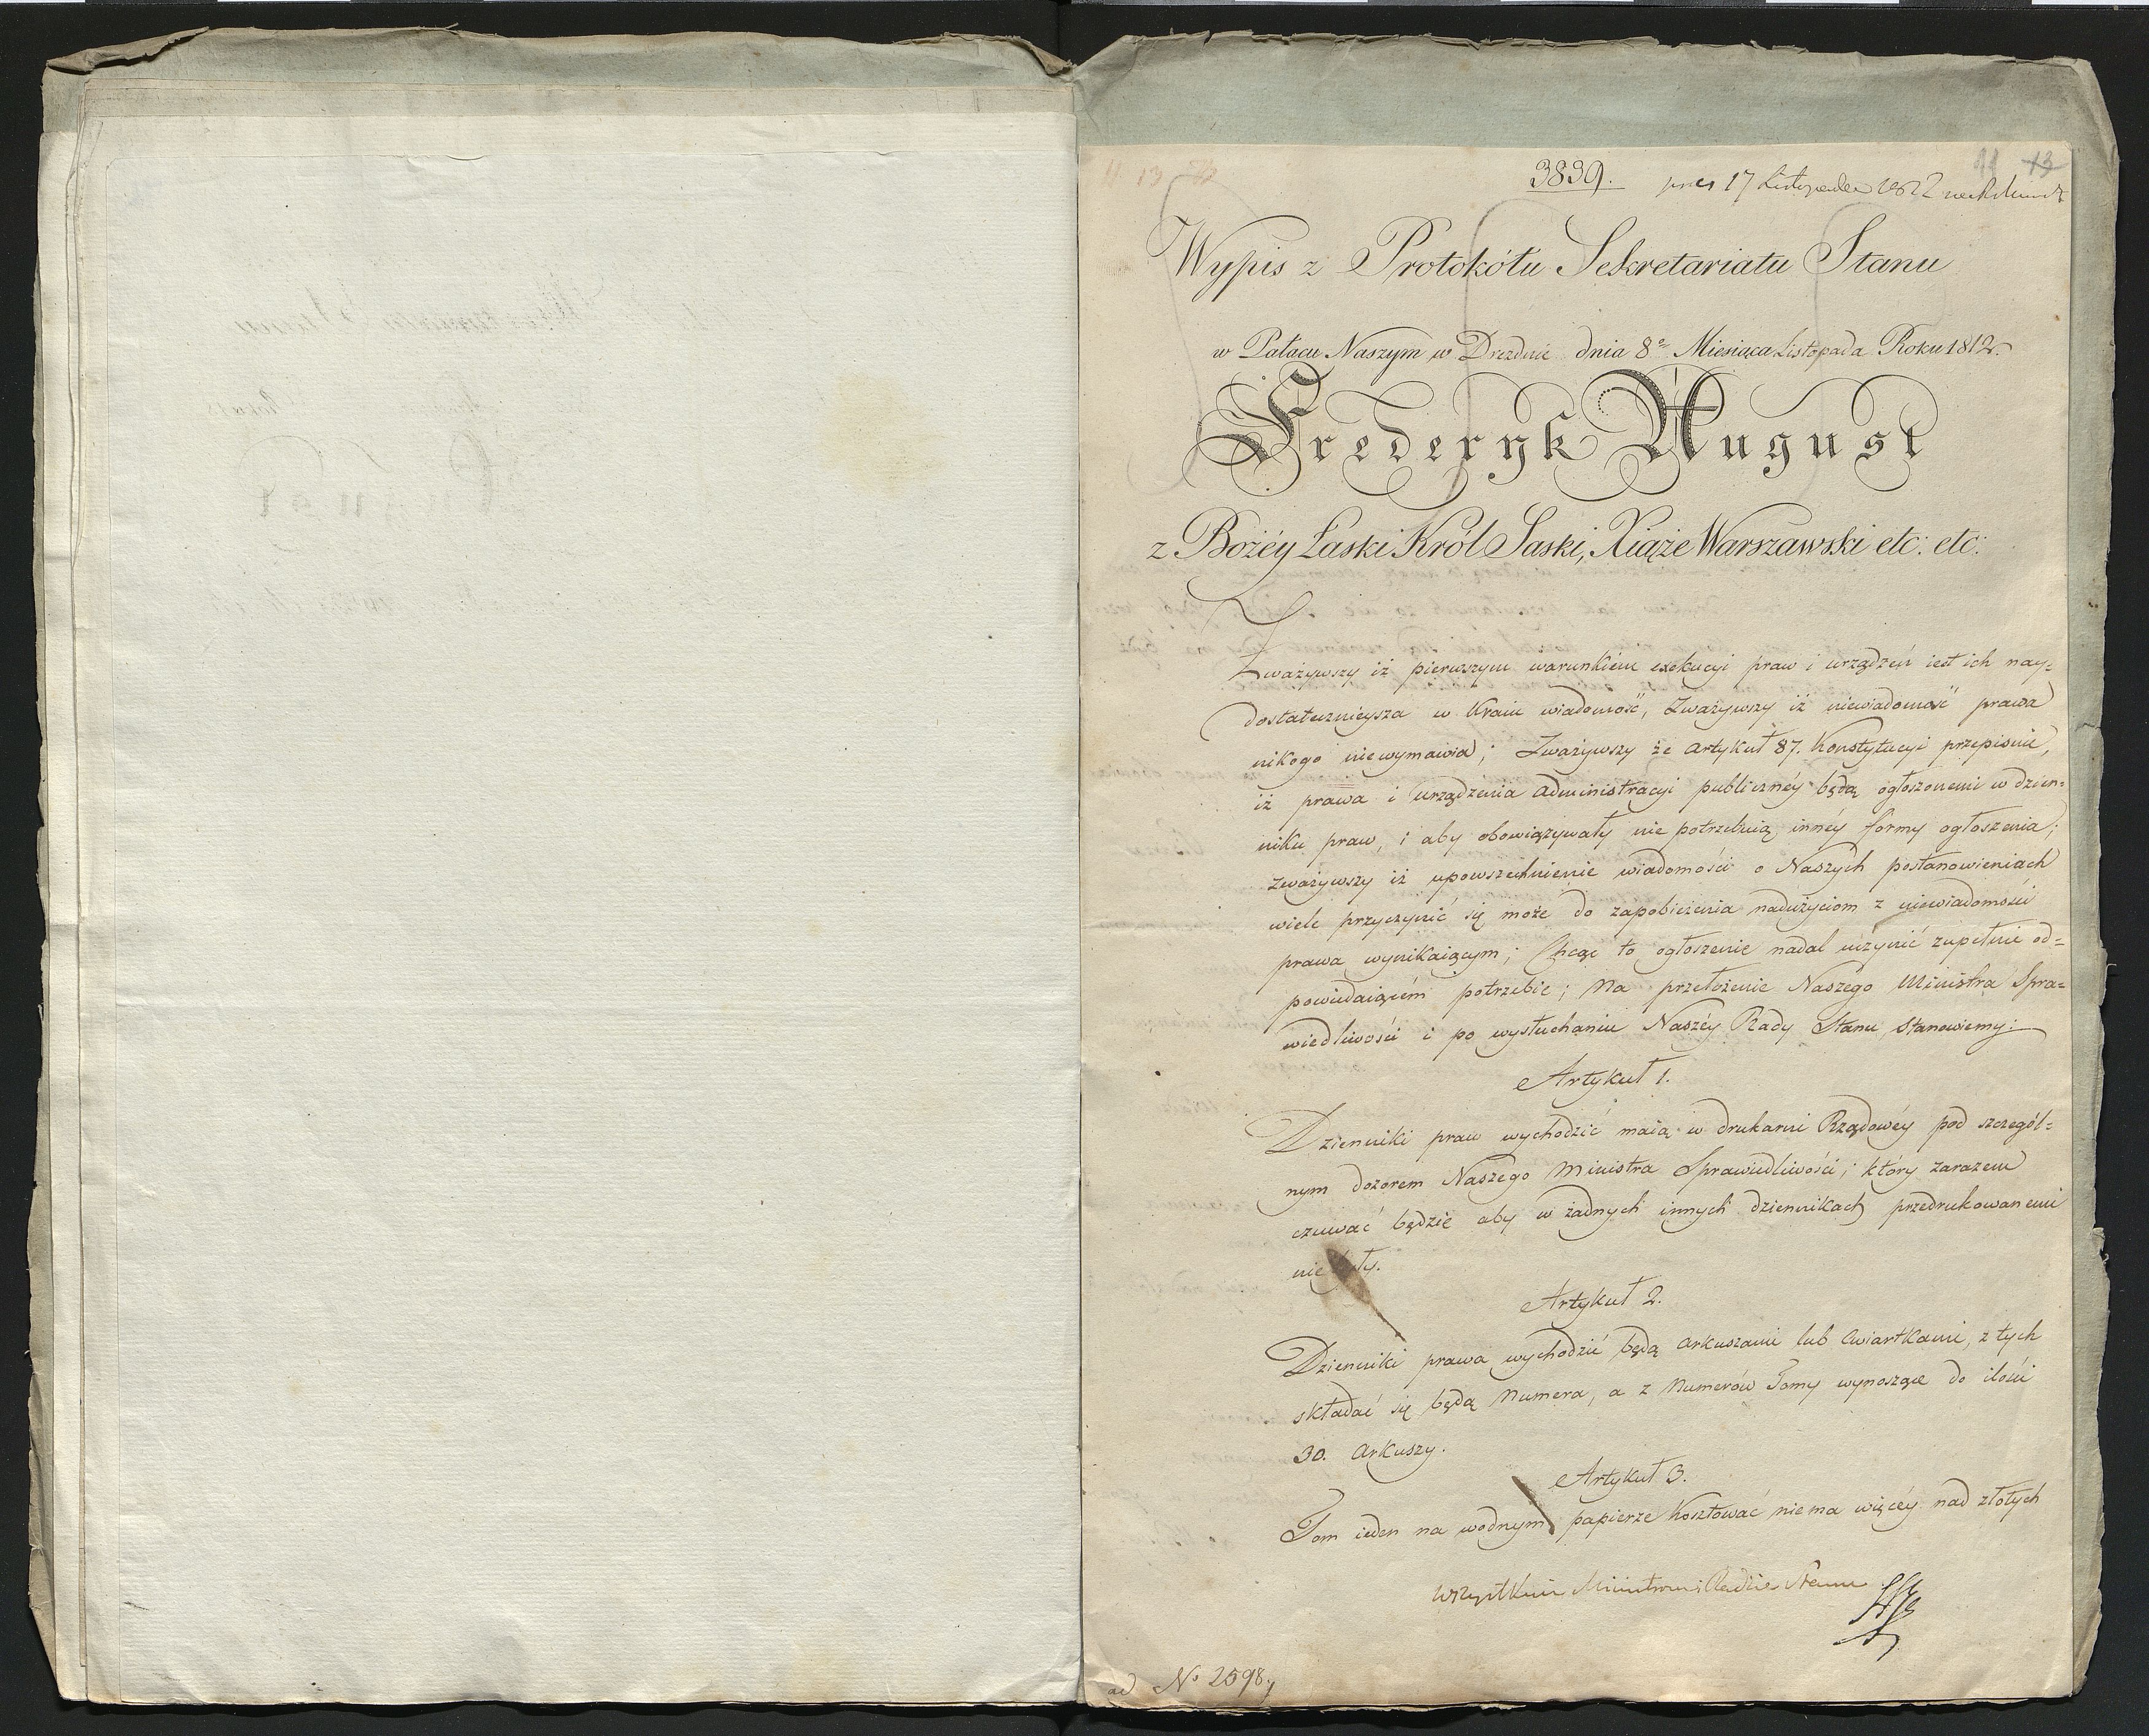 11 13
3839. pres 17 Listopada
Wypis z Protokółu Sekretariatu Stanu
w Pałacu Naszym w Dreznie dnia 8º Miesiąca Listopada Roku 1812.
Frederyk August
z Bożéy Łaski Król Saski, Xiąże Warszawski etc: etc:
Zważywszy iż pierwszym warunkiem exekucyi praw i urządzeń iest ich nay=
dostatecznieysza w Kraiu wiadomość, Zważywszy iż niewiadomość prawa
nikogo niewymawia; Zważywszy że artykuł 87. Konstytucyi przepisuie,
iż prawa i urządzenia administracyi publicznéy będą ogłoszonemi w dzien=
niku praw, i aby obowiązywały nie potrzebuią innéy formy ogłoszenia;
zważywszy iż upowszechnienie wiadomości o Naszych postanowieniach
wiele przyczynić się może do zapobieżenia nadużyciom z niewiadomości
prawa wynikaiącym; Chcąc to ogłoszenie nadal uczynić zupełnie od=
powiedaiącém potrzebie; Na przełożenie Naszego Ministra Spra=
wiedliwości i po wysłuchaniu Naszéy Rady Stanu stanowiemy:
Artykuł 1.
Dzienniki praw wychodzić maią w drukarni Rządowéy pod szczegól=
nym dozorem Naszego Ministra Sprawiedliwości; który zarazem
czuwać będzie aby w żadnych innych dziennikach przedrukowanemi
nie były.
Artykuł 2.
Dzienniki prawa wychodzić będą arkuszami lub ćwiartkami, z tych
składać się będą Numera, a z Numerów Tomy wynoszące do ilości
30. Arkuszy.
Artykuł 3.
Tom ieden na wodnym papierze kosztować nie ma więcéy nad złotych
Wszystkim Ministrom i Radzie Stanu
ad Nº 2598